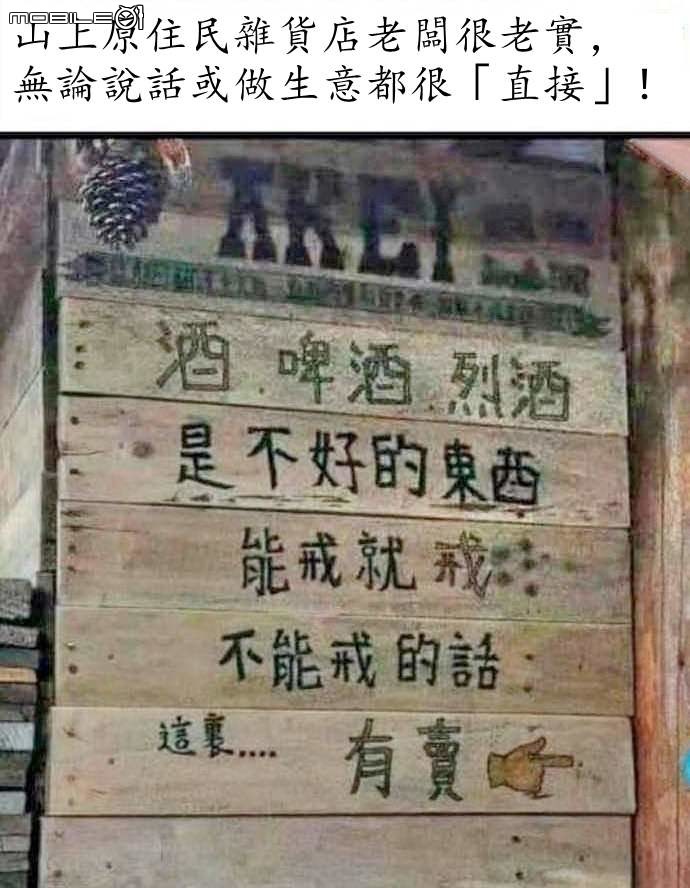 mobile01
山上原住民雜貨店老闆很老實，
無論說話或做生意都很「直接」！
AKEY
酒 啤酒 烈酒
是不好的東西
能戒就戒
不能戒的話
這裏.... 有賣